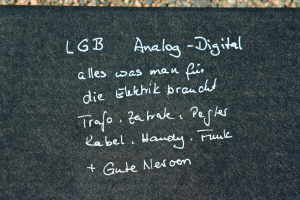 LGB Analog - Digital
alles was man für
die Elektrik braucht
Trafo, Regler
Kabel, Handy, Funk
+ Gute Nerven